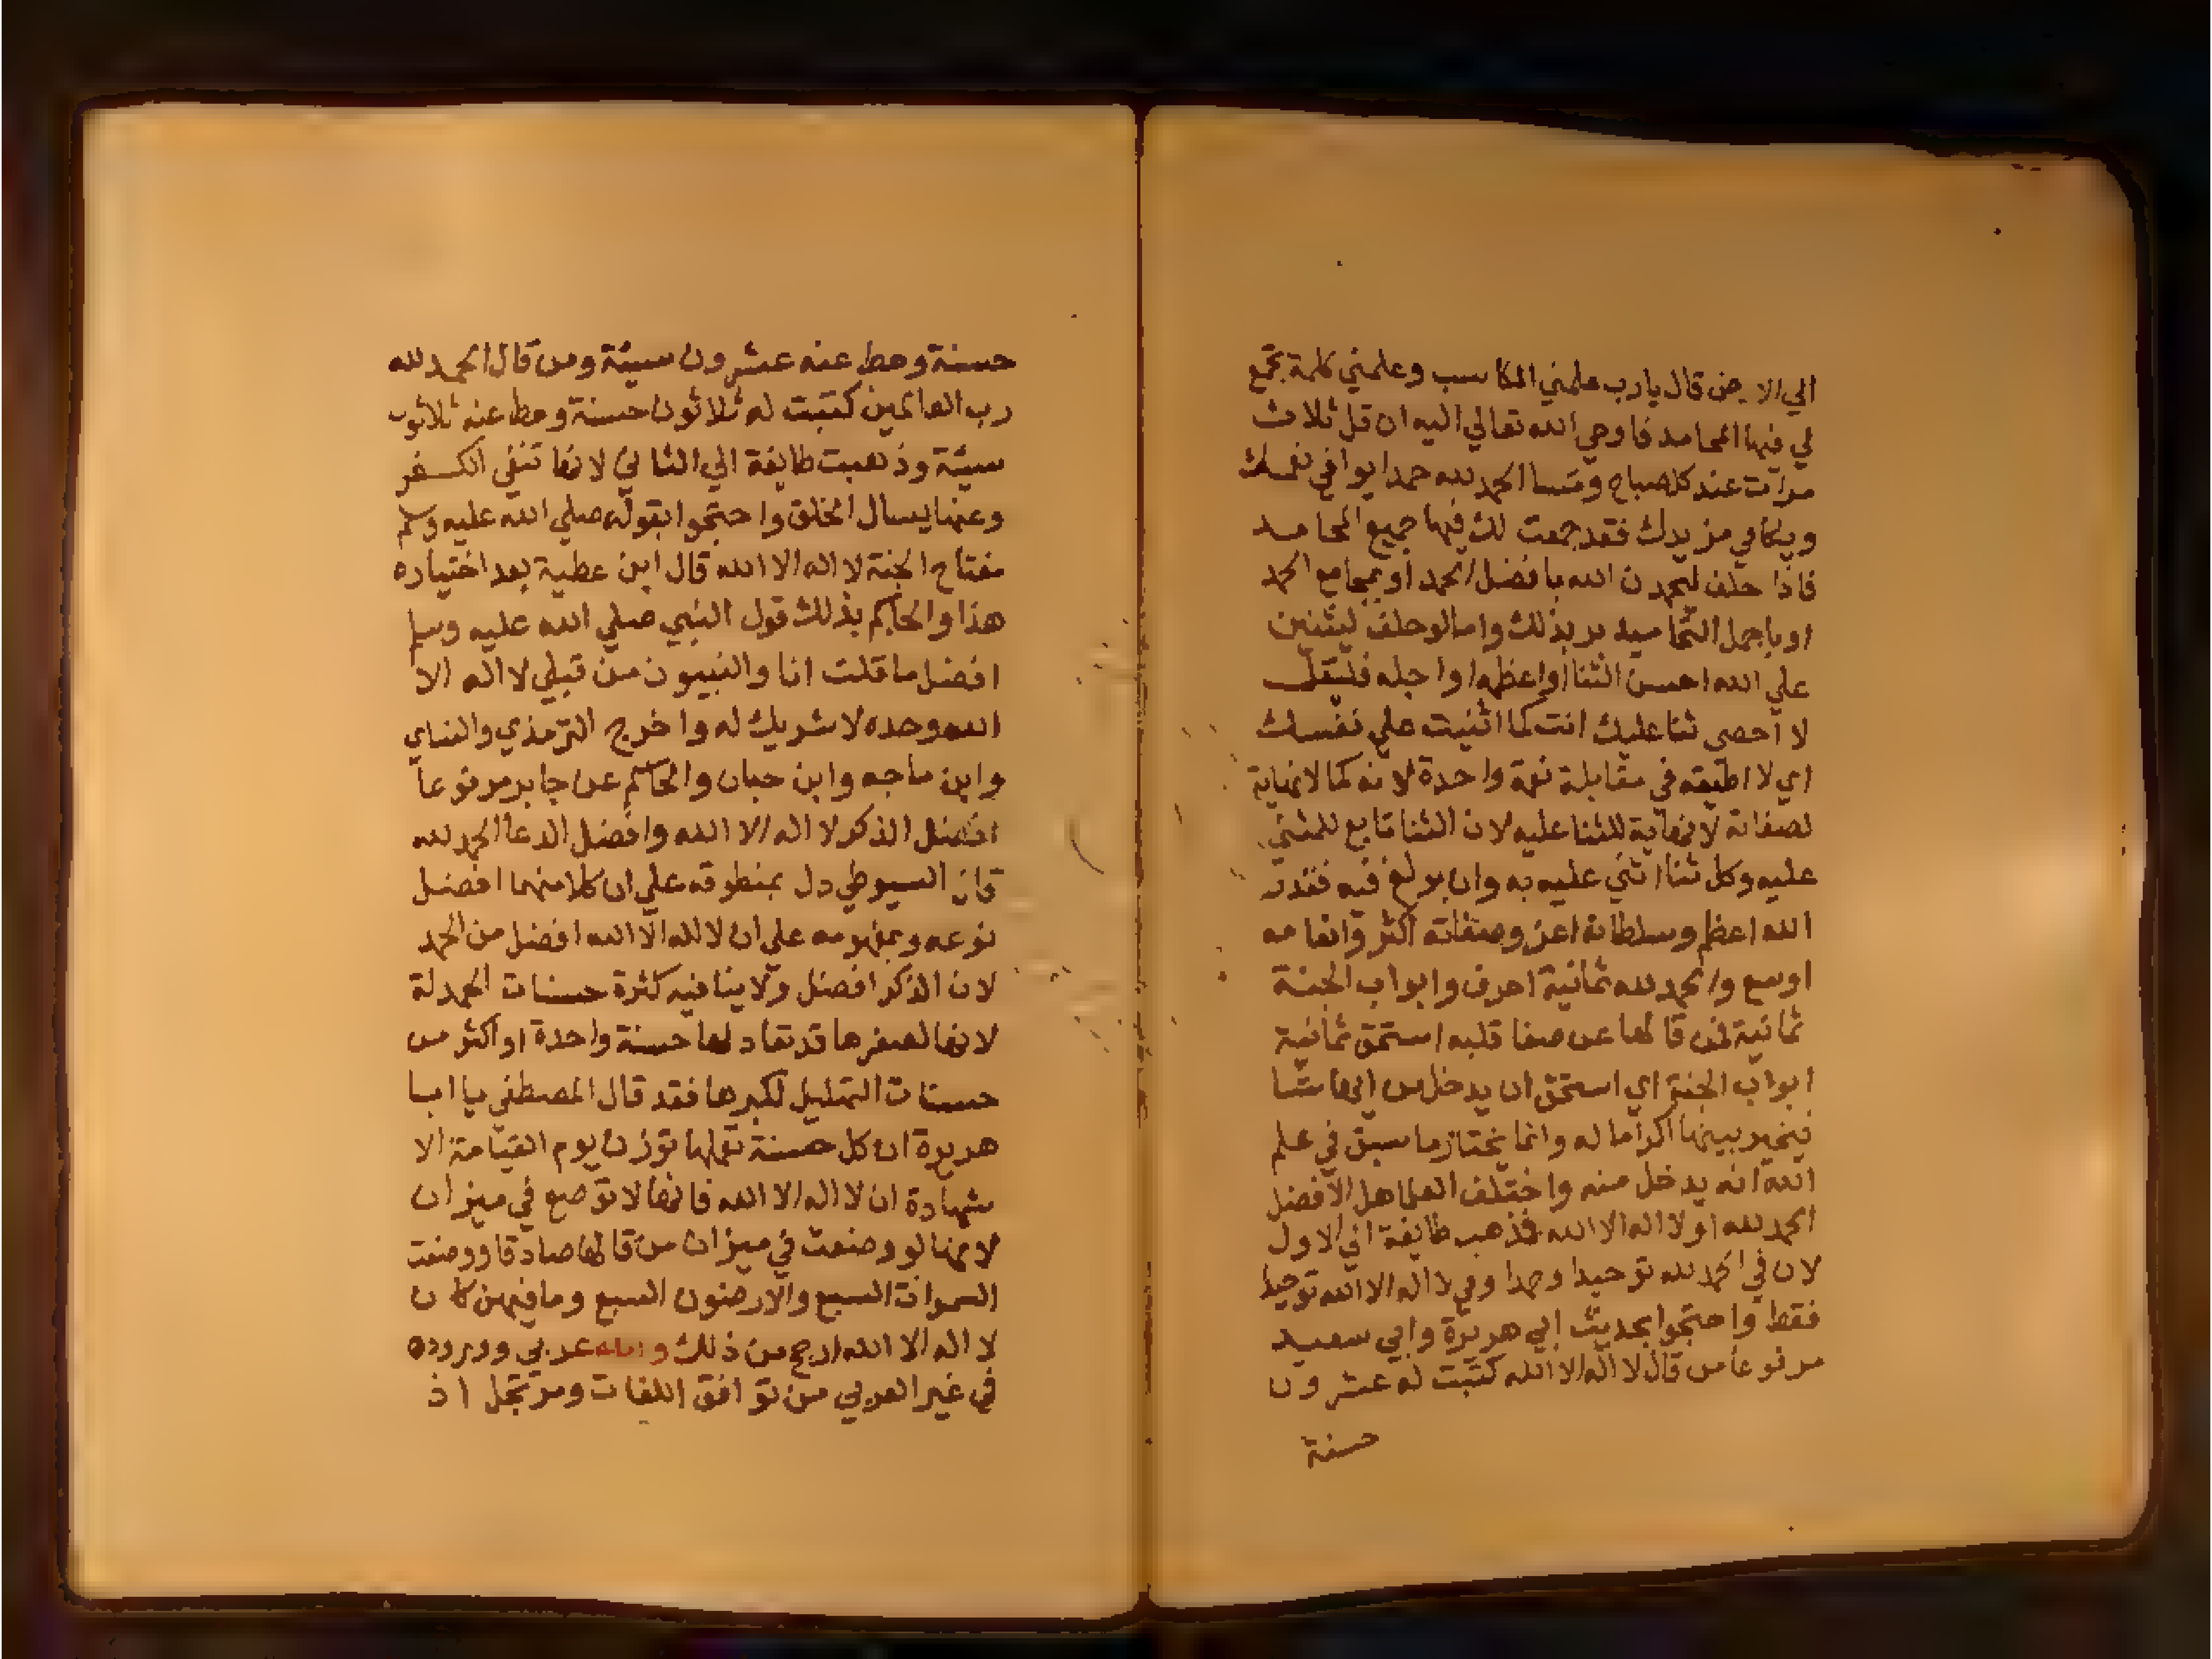 الي الارض قال يارب علمني المكاسب وعلمني كلمة تجمع
لي فيها المحامد فاوحي الله تعالي اليه ان قل ثلاث
مرات عند كل صباح ومسا الحمد لله حمدا يوافي نعمك
ويكافي مزيدك فقد جمعت لك فيها جميع المحامد
فاذا حلف ليحمدن الله بافضل الحمد او بمجامع الحمد
او باجمل التحاميد بر بذلك واما لو حلف ليثنين
علي الله احسن الثنا او اعظمه او اجله فليقل
لا احصي ثنا عليك انت كما اثنيت علي نفسك
اي لا اطيقه في مقابلة نعمة واحدة لانه كما لا نهاية
لصفاته لا نهاية للثنا عليه لان الثنا تابع للمثني
عليه وكل ثنا اثني عليه به وان بولغ فيه فقدر
الله اعظم وسلطانه اعز وصفاته اكثر وانعامه
اوسع والحمد لله ثمانية احرف وابواب الجنة
ثمانية فمن قالها عن صفا قلبه استحق ثمانية
ابواب الجنة اي استحق ان يدخل من ايها شا
فيخير بينها اكراما له وانما يختار ما سبق في علم
الله انه يدخل منه واختلف العلما هل الافضل
الحمد لله او لا اله الا الله فذهب طايفة الي الاول
لان في الحمد لله توحيدا وحمدا وفي لا اله الا الله توحيدا
فقط واحتجوا بحديث ابي هريرة وابي سعيد
مرفوعا من قال لا اله الا الله كتبت له عشرون
حسنة
حسنة وحط عنه عشرون سيئة ومن قال الحمد لله
رب العالمين كتبت له ثلاثون حسنة وحط عنه ثلاثون
سيئة وذهبت طايفة الي الثاني لانها تنفي الكفر
وعنها يسال الخلق واحتجوا بقوله صلي الله عليه وسلم
مفتاح الجنة لا اله الا الله قال ابن عطية بعد اختياره
هذا والحاكم بذلك قول النبي صلي الله عليه وسلم
افضل ما قلت انا والنبيون من قبلي لا اله الا
الله وحده لا شريك له واخرج الترمذي والنساي
وابن ماجه وابن حبان والحاكم عن جابر مرفوعا
افضل الذكر لا اله الا الله وافضل الدعا الحمد لله
قال السيوطي دل بمنطوقه علي ان كلا منهما افضل
نوعه وبمفهومه علي ان لا اله الا الله افضل من الحمد
لان الذكر افضل ولا ينافيه كثرة حسنات الحمدلة
لانها لصغرها قد تعادلها حسنة واحدة او اكثر من
حسنات التهليل لكبرها فقد قال المصطفي يا ابا
هريرة ان كل حسنة تعملها توزن يوم القيامة الا
شهادة ان لا اله الا الله فانها لا توضع في ميزان
لانها لو وضعت في ميزان من قالها صادقا ووضعت
السموات السبع والارضون السبع وما فيهن كان
لا اله الا الله ارجح من ذلك عربي ووروده
في غير العربي من توافق اللغات ومرتجل اذ